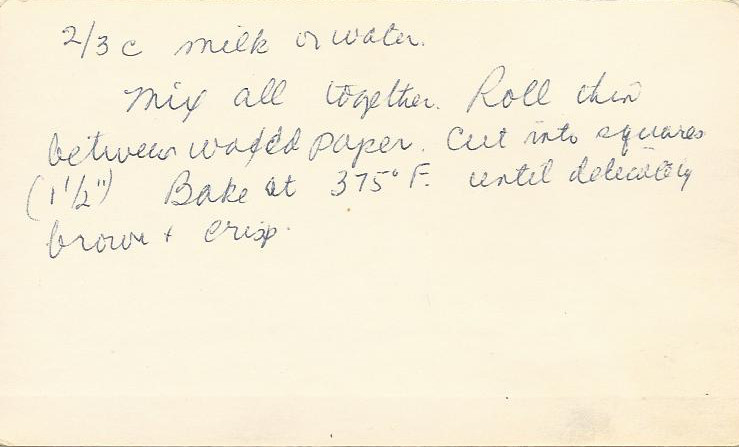 2/3 c milk or water.
Mix all together. Roll thin
between waxed paper. Cut into squares
(1 1/2") Bake at 375° F. until delicately
brown + crisp.